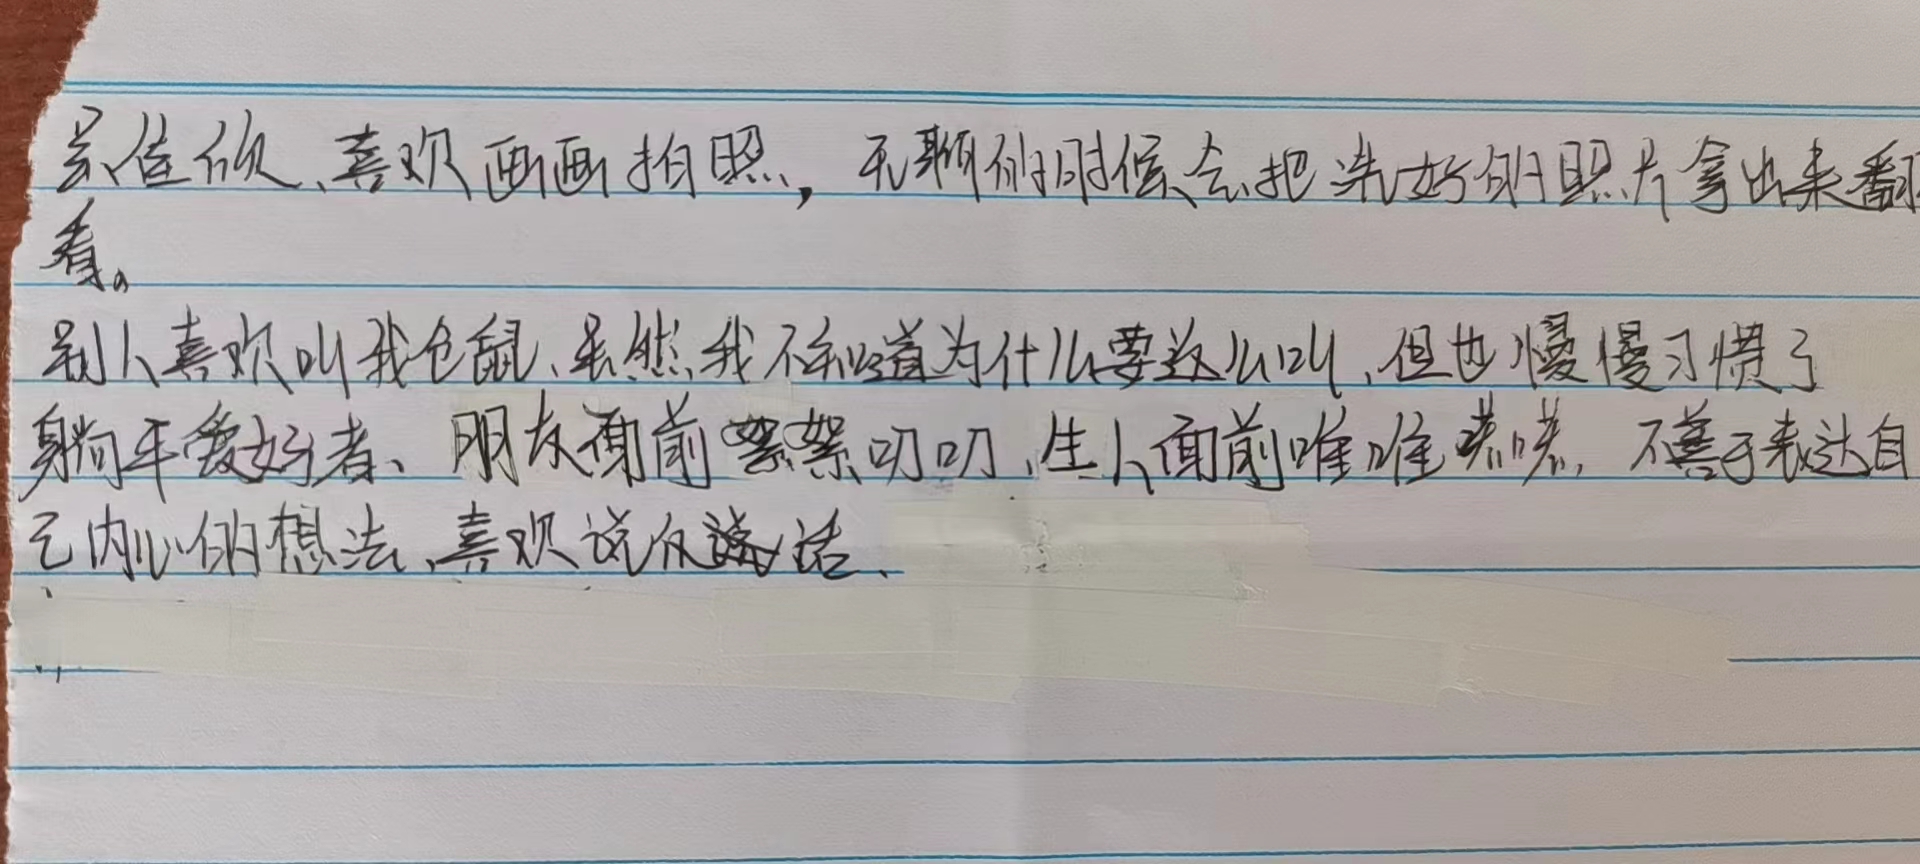 佳欣、喜欢画画拍照，无聊的时候会把洗好的照片拿出来翻
看。
别人喜欢叫我仓鼠、虽然我不知道为什么要这么叫、但也慢慢习惯了
躺平爱好者、朋友面前絮絮叨叨、生人面前唯唯诺诺、不善于表达自
己内心的想法、喜欢说反话、